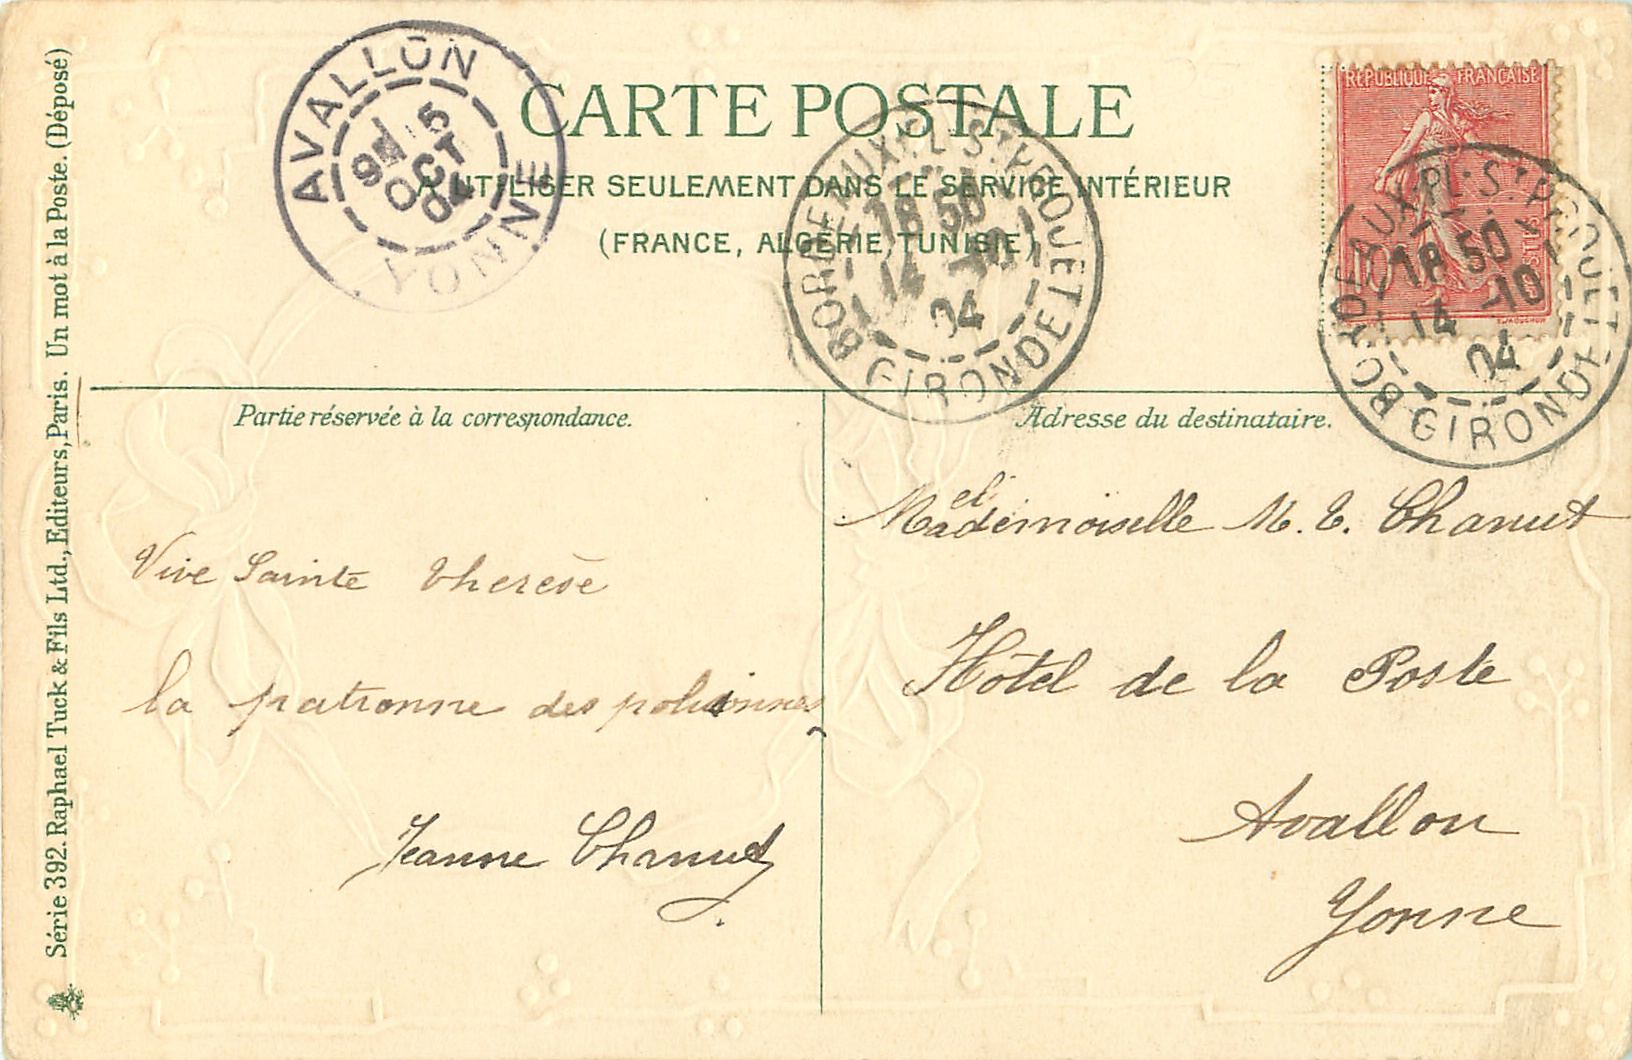 CARTE POSTALE
A UTILISER SEULEMENT DANS LE SERVICE INTÉRIEUR
(FRANCE, ALGÉRIE, TUNISIE)
AVALLON
15
OCT
04
YONNE
BORDEAUX-PL. ST. PROJET
18 50
14 -10
04
GIRONDE
RÉPUBLIQUE FRANÇAISE
10
POSTES
BORDEAUX-PL. ST. PROJET
18 50
14 -10
04
GIRONDE
Série 392. Raphael Tuck & Fils Ltd., Editeurs, Paris. Un mot à la Poste. (Déposé)
Partie réservée à la correspondance.
Vive Sainte Therèse
la patronne des polissonnes
Jeanne Chanut
Adresse du destinataire.
Mademoiselle M. T. Chanut
Hôtel de la Poste
Avallon
Yonne